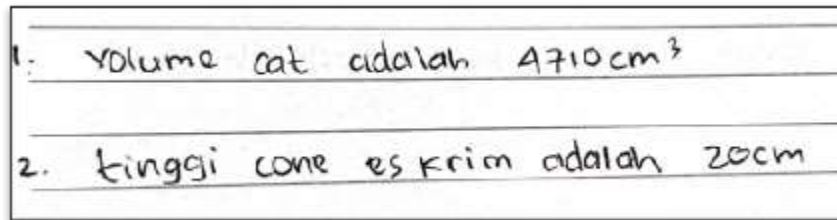 1. Volume cat adalah 4710 cm³
2. tinggi cone es krim adalah 20cm